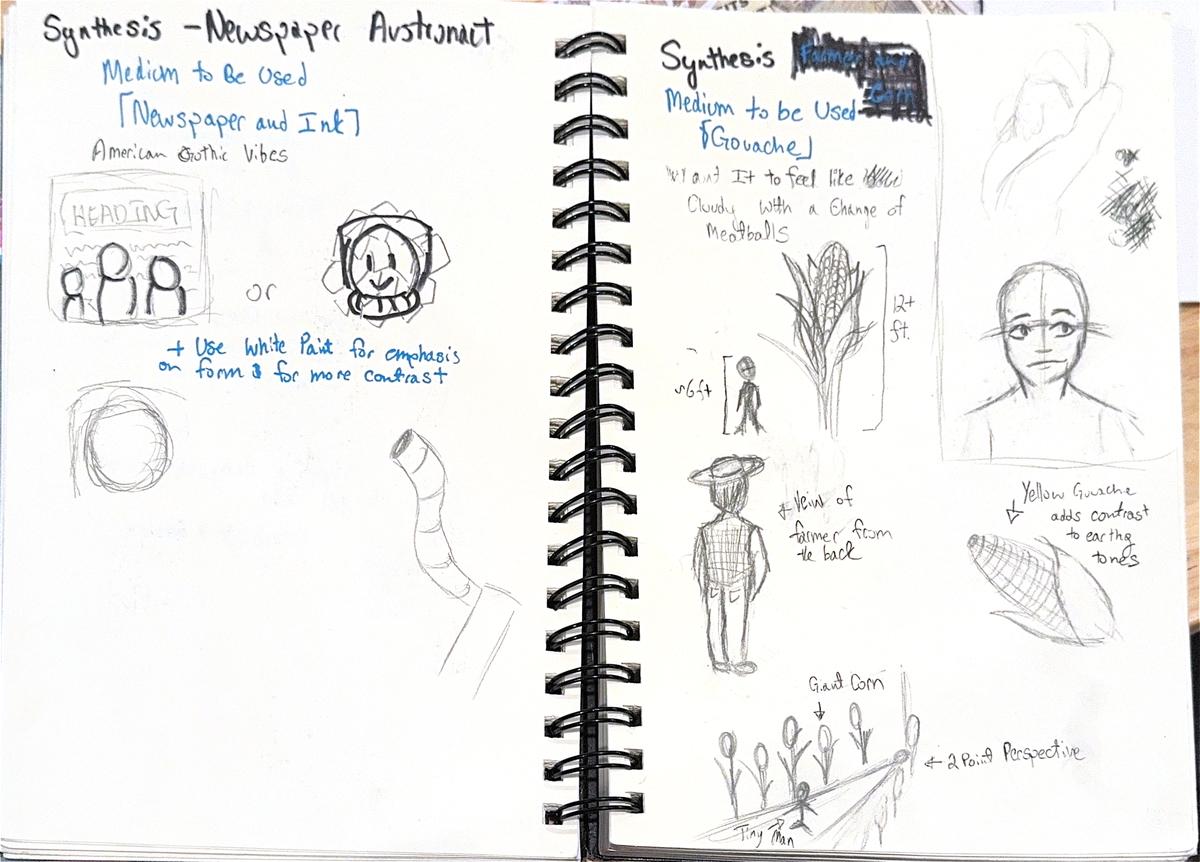 Synthesis - Newspaper Austronact
Medium to Be Used
[Newspaper and Ink]
American Gothic Vibes
HEADING
or
+ Use White Paint for emphasis
on form & for more contrast
Synthesis Farmer and
Corn
Medium to be Used-
[Gouache]
Want It to feel like
Cloudy With a Change of
Meatballs
12+
ft.
~6ft
Veiw of
farmer from
the back
Yellow Gouache
adds contrast
to earthy
tones
Giant Corn
2 Point Perspective
Tiny Man